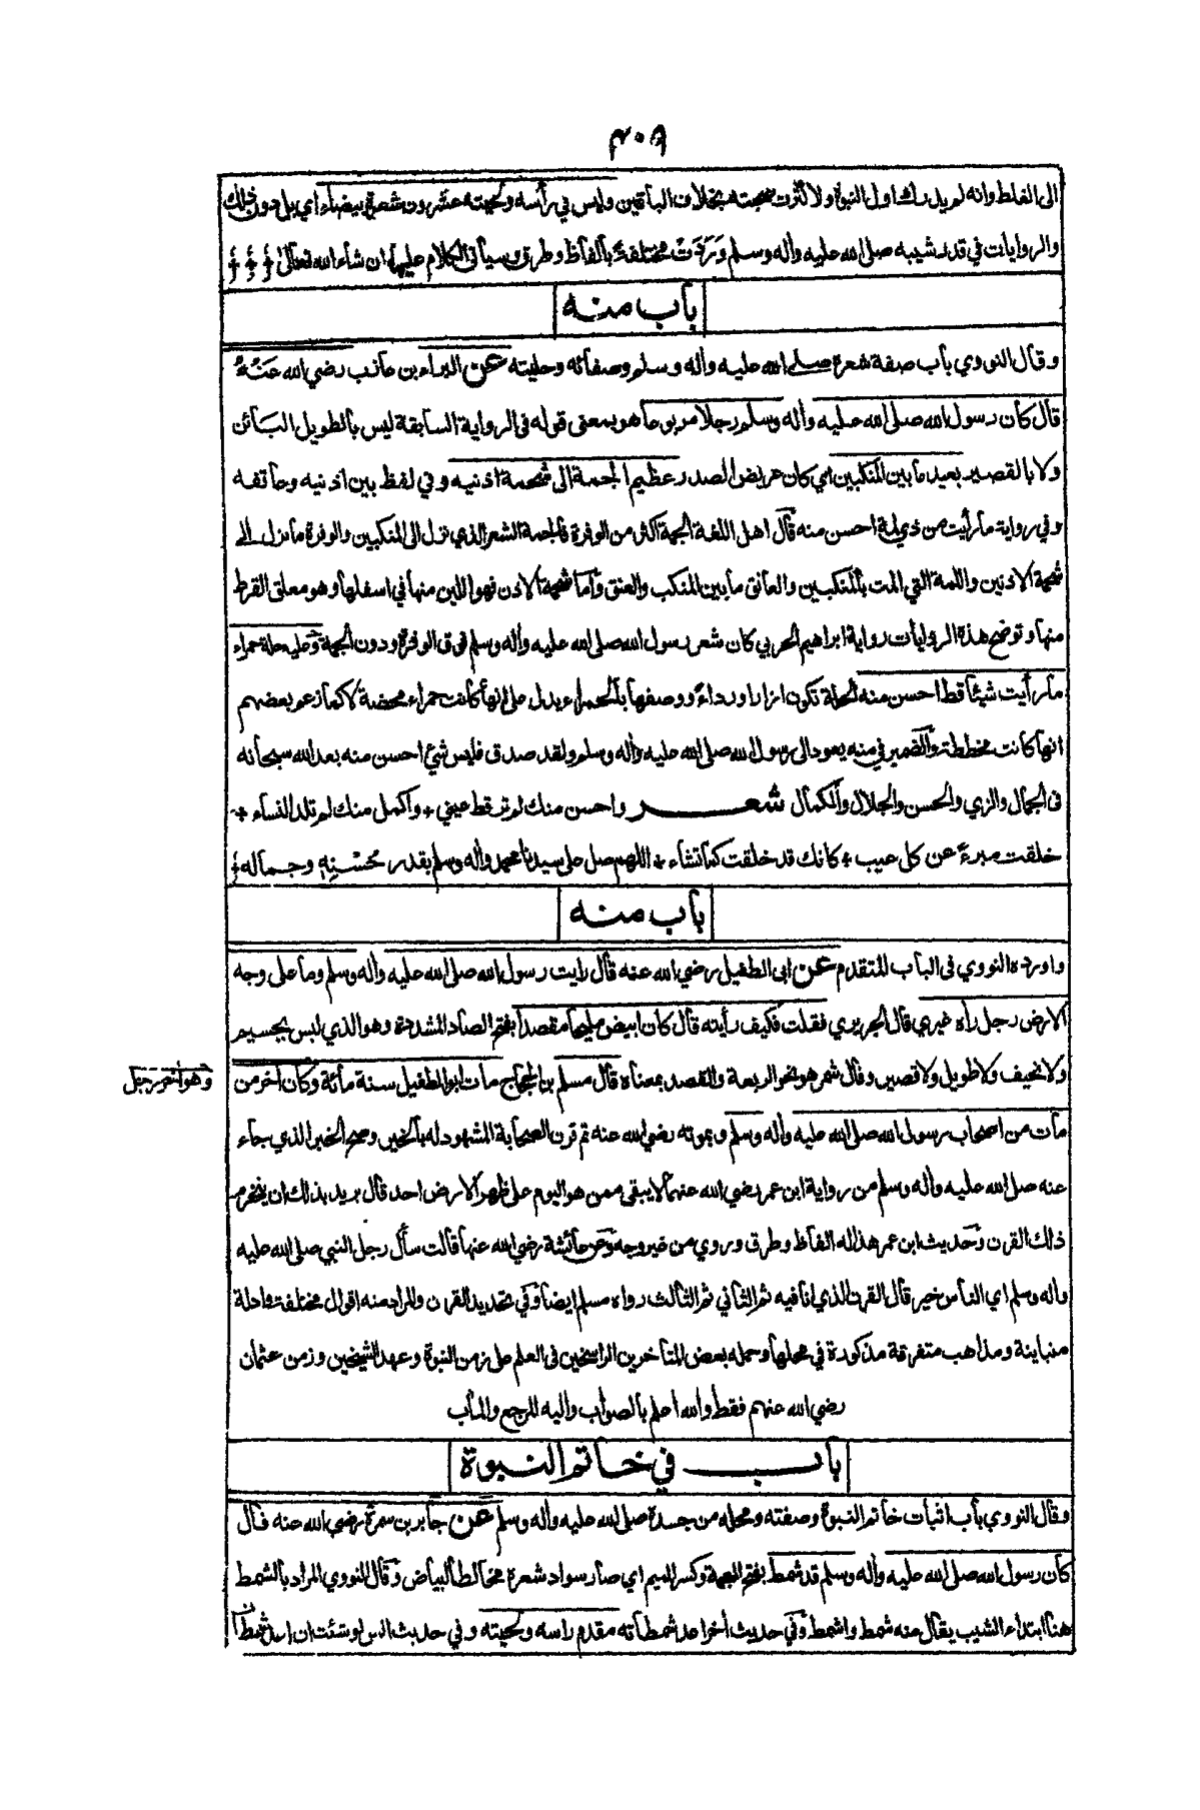 ٤٠٩
الى الغلط وانه لم يدرك اول النبوة ولا كثرت صحبته بخلاف الباقين وليس في رأسه ولحيته عشرون شعرة بيضاء اي بل دون ذلك
والروايات في قدر شيبه صلى الله عليه وأله وسلم وَرَدَتْ مختلفة بألفاظ وطرق وسيأتى الكلام عليها ان شاء الله تعالى
باب منه
وقال النووي باب صفة شعره صلى الله عليه وأله وسلم وصفاته وحليته عن البراء بن عازب رضي الله عَنْهُ
قال كان رسول الله صلى الله عليه وأله وسلم رجلا مربوعا هو بمعنى قوله في الرواية السابقة ليس بالطويل البائن
ولا بالقصير بعيد ما بين المنكبين اي كان عريض الصدر عظيم الجمة الى شحمة اذنيه وفي لفظ بين اذنيه وعاتقه
وفي رواية ما رأيت من ذي لمة احسن منه قال اهل اللغة الجمة اكثر من الوفرة فالجمة الشعر الذي نزل الى المنكبين والوفرة ما نزل الى
شحمة الاذنين واللمة التي المت بالمنكبين والعاتق ما بين المنكب والعنق واما شحمة الاذن فهو اللين منها في اسفلها وهو معلق القرط
منها وتوضح هذه الروايات رواية ابراهيم الحربي كان شعر رسول الله صلى الله عليه وأله وسلم فوق الوفرة ودون الجمة وعليه حلة حمراء
ما رأيت شيئا قط احسن منه الحلة تكون ازارا ورداءً ووصفها بالحمراء يدل على انها كانت حمراء محضة لا كما زعم بعضهم
انها كانت مخططة والضمير في منه يعود الى رسول الله صلى الله عليه وأله وسلم ولقد صدق فليس شئ احسن منه بعد الله سبحانه
فى الجمال والزي والحسن والجلال والكمال شعر واحسن منك لم تر قط عيني + واكمل منك لم تلد النساء +
خلقت مبرءً عن كل عيب + كانك قد خلقت كما تشاء + اللهم صل على سيدنا محمد وأله وسلم بقدر حُسْنِهِ وجماله
باب منه
واورده النووي فى الباب المتقدم عن ابى الطفيل رضي الله عنه قال رايت رسول الله صلى الله عليه وأله وسلم وما على وجه
الارض رجل رأه غيري قال الجريري فقلت فكيف رأيته قال كان ابيض مليحا مقصدا بفتح الصاد المشددة وهو الذي ليس بجسيم
ولا نحيف ولا طويل ولا قصير وقال شمر هو نحو الربعة والقصد بمعناه قال مسلم بن الحجاج مات ابو الطفيل سنة مأئة وكان أخر من
وهو أخر رجل
مات من اصحاب رسول الله صلى الله عليه وأله وسلم وبموته رضي الله عنه تم قرن الصحابة المشهود له بالخير وصح الخبر الذي جاء
عنه صلى الله عليه وأله وسلم من رواية ابن عمر رضي الله عنهما لا يبقى ممن هو اليوم على ظهر الارض احد قال يريد بذلك ان ينخرم
ذلك القرن وحديث ابن عمر هذا له الفاظ وطرق وروي من غير وجه وعن عائشة رضي الله عنها قالت سأل رجل النبي صلى الله عليه
وأله وسلم اي الناس خير قال القرن الذي انا فيه ثم الثاني ثم الثالث رواه مسلم ايضا وفي تحديد القرن والمراد منه اقوال مختلفة وادلة
متباينة ومذاهب متفرقة مذكورة في محلها وحمله بعض المتأخرين الراسخين فى العلم على زمن النبوة وعهد الشيخين وزمن عثمان
رضي الله عنهم فقط والله اعلم بالصواب واليه المرجع والمأب
باب في خاتم النبوة
وقال النووي باب اثبات خاتم النبوة وصفته ومحله من جسده صلى الله عليه وأله وسلم عن جابر بن سمرة رضي الله عنه قال
كان رسول الله صلى الله عليه وأله وسلم قد شمط بفتح المعجمة وكسر الميم اي صار سواد شعره مخالطا لبياض وقال النووي المراد بالشمط
هنا ابتداء الشيب يقال منه شمط واشمط وفي حديث أخر اعد شمطاته مقدم راسه ولحيته وفي حديث انس لو شئت ان اعد شمطات